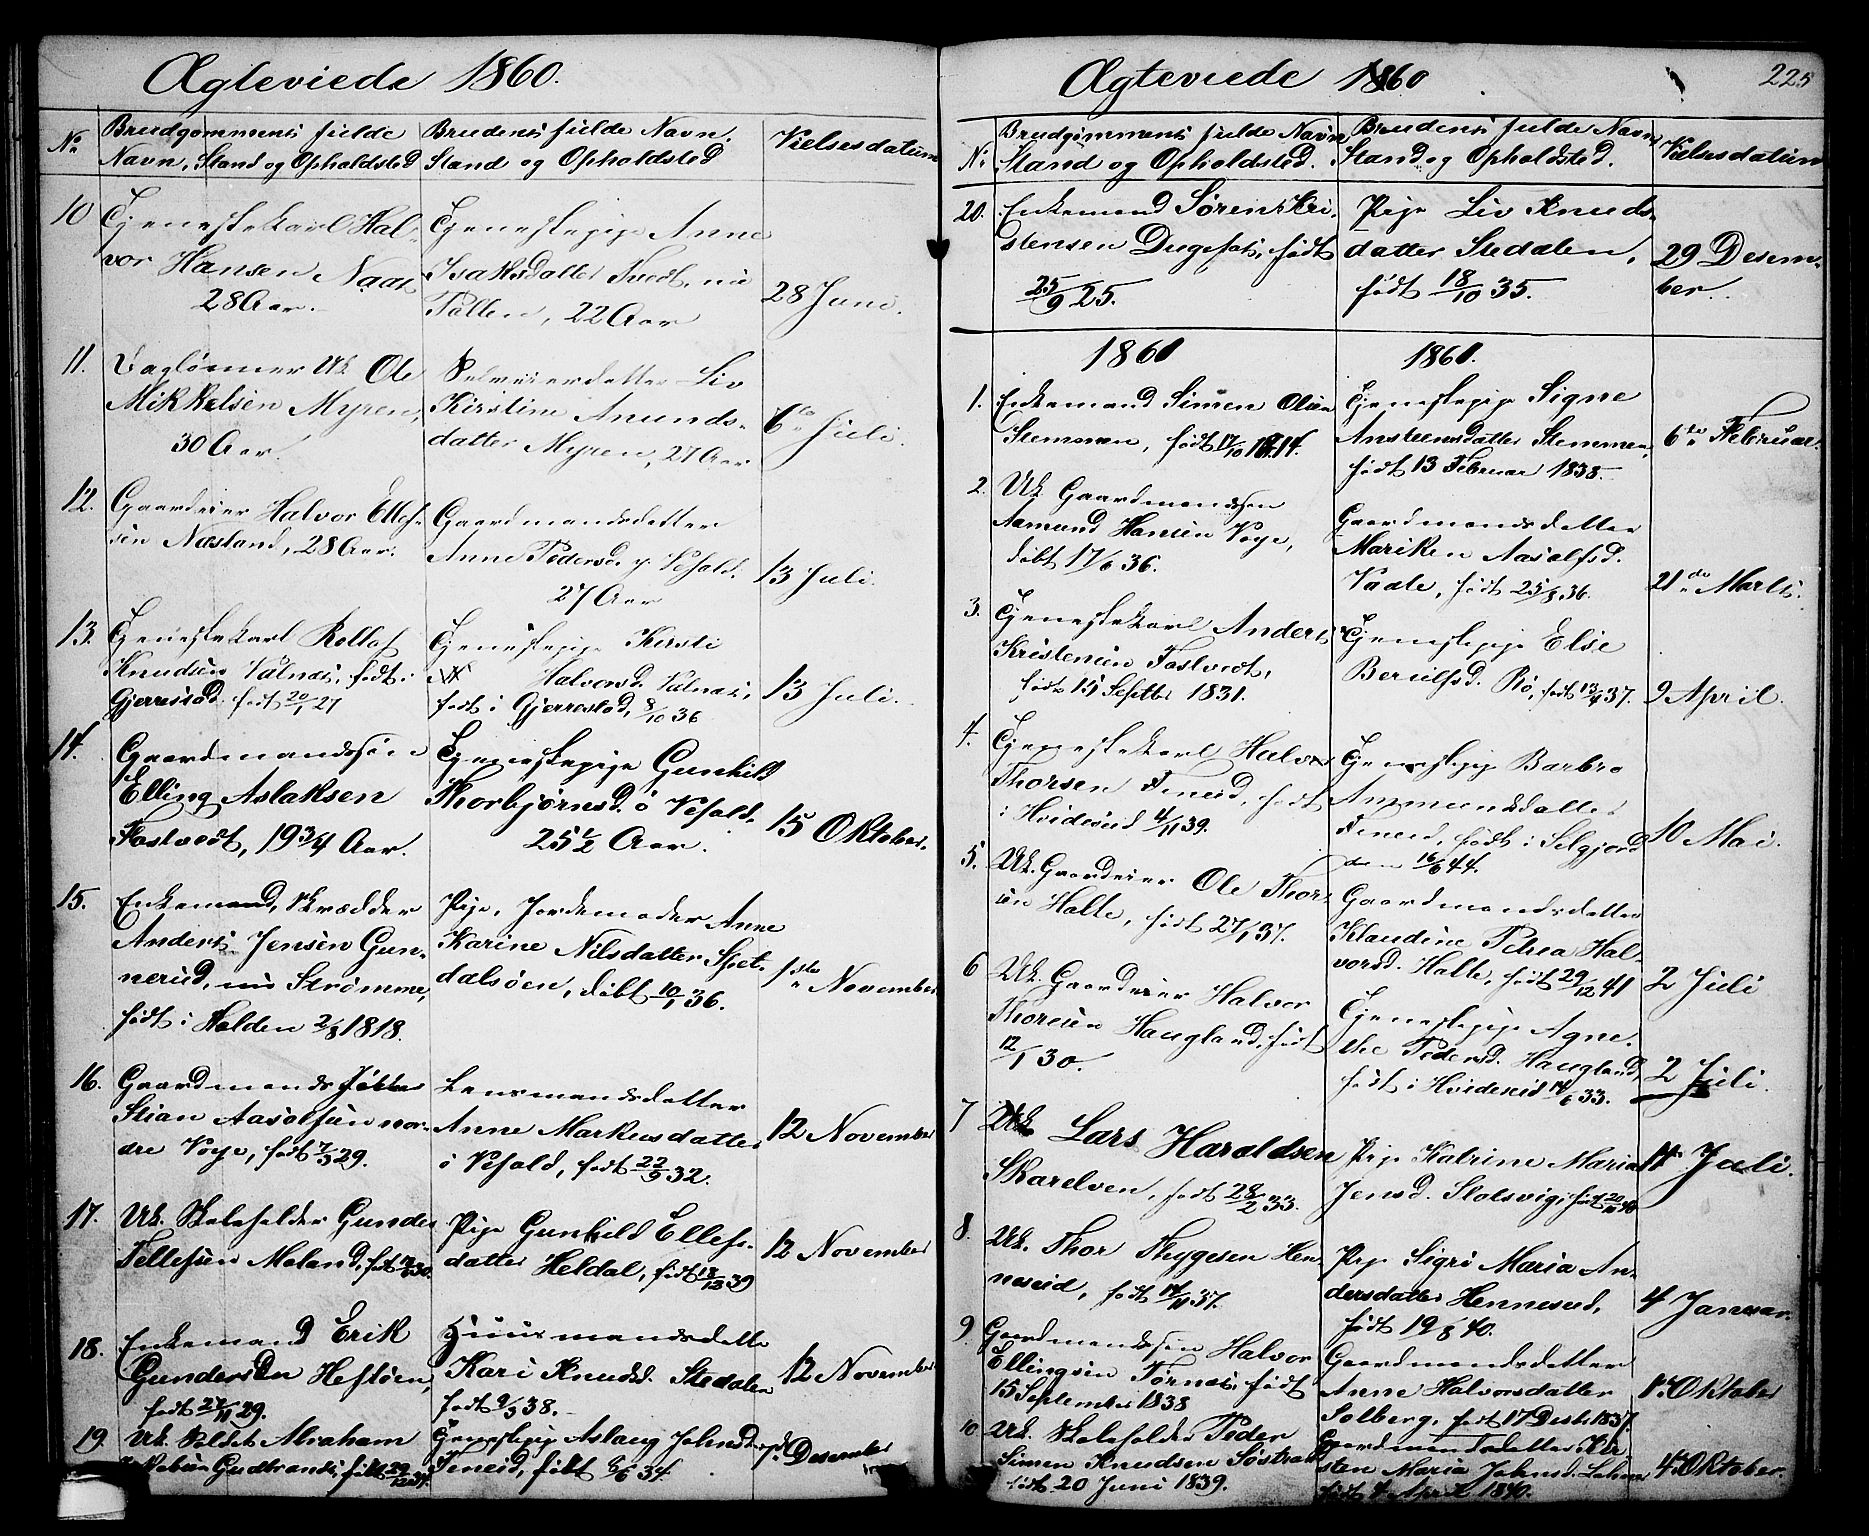 Ægteviede 1860.
No
Brudgommens fulde
Navn, Stand og Opholdsted
Brudens fulde Navn,
Stand og Opholdsted
Vielsesdatum
10
Tjenestekarl Hal-
vor Hansen Naas
28 Aar.
Tjenestepige Anne
Isaksdatter Tvedt, nu
Tallen, 22 Aar
28 Juni.
11.
Daglønner Uk. Ole
Mikkelsen Myren,
30 Aar.
Selveierdatter Liv
Kirstine Anunds-
datter Myren, 27 Aar
6te Juli.
12.
Gaardeier Halvor Ellef-
sen Næsland, 28 Aar.
Gaardmandsdatter
Anne Pedersd. y. Vefald.
27 Aar
13 Juli.
13.
Tjenestekarl Rollof
Knudsen Valnæs, født i
Gjerrestad født 20/1 27
Tjenestepige Kirsti
Halvorsd. Valnæs,
født i Gjerrestad, 8/10 36
13 Juli.
14.
Gaardmandssøn
Elling Aslaksen
Fostvedt, 19 3/4 Aar.
Tjenestepige Gunhild
Thorbjørnsd. ö Vefald.
25 1/2 Aar.
15 Oktober.
15.
Enkemand, Skrædder
Anders Jensen Gun-
nerud, nu Strømme,
født i Holden 2/8 1818.
Pige, Jordemoder Anne
Karine Nilsdatter Spet-
dalsøen, døbt 10/1 36.
1ste November
16.
Gaardmands
Stian Aasolfsen nor-
dre Voje, født 7/3 29.
Lensmandsdatter
Anne Markusdatter
ö Vefald, født 22/9 32.
12 November
17.
Uk. Skoleholder Gunder
Tellefsen Moland, født 30.
Pige Gunhild Ellefs-
datter Heldal, født 18/12 39
12 November
18.
Enkemand Erik
Gundersen Heftøen,
født 27/11 29.
Huusmandsdatte
Kari Knudsd. Stedalen
født 9/3 38.
12 November
19
Uk. Soldat Abraham
Jakobsen Gudbrands, født 29/12 34.
Tjenestepige Aslaug Johnsd.
Feneid, født 6/6 34.
7de Desember
Ægteviede 1860
225
No
Brudgommens fulde Navn
Stand og Opholdsted.
Brudens fulde Navn
Stand og Opholdsted.
Vielsesdatum
20.
Enkemand Søren Kri-
stensen Dugefos, født
25/9 25.
Pige Liv Knuds-
datter Stedalen,
født 18/10 35.
29 Desem-
ber.
1861
1861.
1.
Enkemand Simen Olsen
Stemmen, født 17/10 1814.
Tjenestepige Signe
Anstensdatter Stemmen,
født 13 Februar 1838.
6te Februar.
2.
Uk. Gaardmandssøn
Aamund Hansen Voje,
døbt 17/6 36.
Gaardmandsdatter
Mariken Aasolfsd.
Vadle, født 25/8 36.
21de Marts.
3.
Tjenestekarl Anders
Kristensen Fostvedt,
født 15 Septbr 1831.
Tjenestepige Else
Berulfsd. Rø, født 13/4 37.
9 April.
4.
Tjenestekarl Halvor
Thorsen Feneid, født
i Hvideseid 4/11 39.
Tjenestepige Barbro
Ammundsdatter
Feneid, født i Selgjord
den 16/6 44.
10 Mai.
5.
Uk. Gaardeier Ole Thor-
sen Halle, født 27/1 37.
Gaardmandsdatter
Klaudine Petrea Hal-
vorsd. Halle, født 29/12 41
2 Juli
6
Uk. Gaardeier Halvor
Thorsen Haugland, født
12/1 30.
Tjenestepige Agne-
the Pedersd. Haugland,
født i Hvideseid 14/6 33.
2 Juli.
7
Uk. Lars Haraldsen
Skarelven, født 28/2 33.
Pige Katrine Maria
Jensd. Slotsvig, født 20/11 40
11 Juli.
8.
Uk. Thor Thygesen Hen-
neseid, født 14/11 37.
Pige Sigri Maria An-
dersdatter Henneseid,
født 19/8 40.
4 Januar.
9
Gaardmandssøn Halvor
Ellingsen Fornæs, født
15 September 1838
Gaardmandsdatter
Anne Halvorsdatter
Solberg, født 17 Desb. 1837.
13 Oktober
10
Uk. Skoleholder Peder
Simen Knudsen Søstrand
født 20 Juni 1839.
Gaardmandsdatter Kir
sten Maria Johnsd.
født 4 April 1840.
4 Oktober.